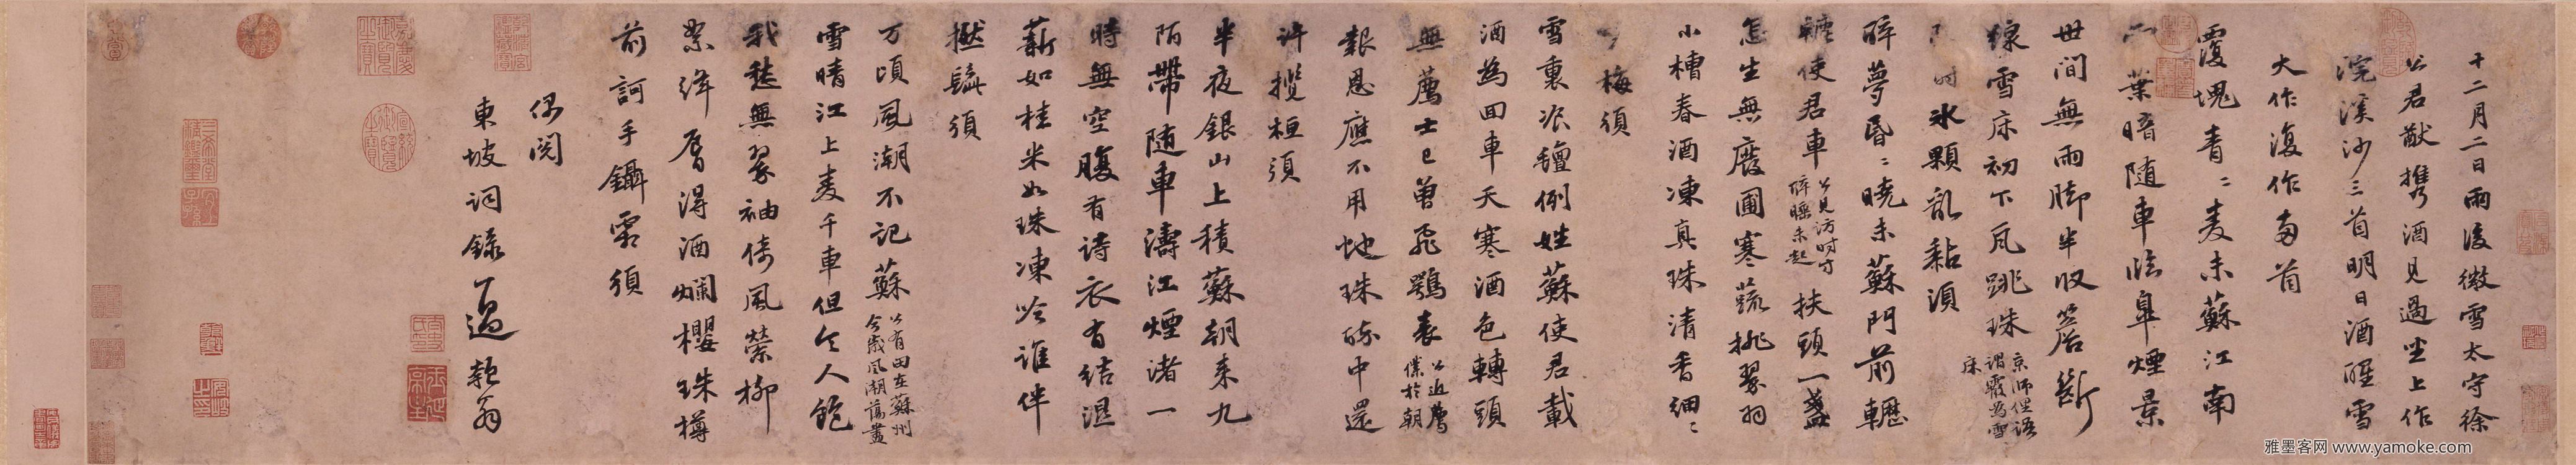 十二月二日雨後微雪太守徐
公君猷攜酒見過坐上作
浣溪沙三首明日酒醒雪
大作復作兩首
覆塊青〻麥未蘇江南
葉暗隨車臨皐煙景
世間無雨脚半収簷断
線雪床初下瓦跳珠京師俚語謂霰為雪床
時氷顆乱黏須
醉夢昏〻曉未蘇門前轣
轆使君車公見訪時方醉睡未起扶頭一盞
怎生無廢圃寒蔬挑翠羽
小槽春酒凍真珠清香細〻
梅須
雪裏飡氊例姓蘇使君載
酒為回車天寒酒色轉頭
無薦士已曽飛鶚表公近薦僕於朝
報恩應不用虵珠醉中還
許攬桓須
半夜銀山上積蘇朝来九
陌帶隨車濤江煙渚一
時無空腹有诗衣有結濕
薪如桂米如珠凍吟誰伴
撚髭須
万頃風潮不記蘇公有田在蘇州今歲風潮蕩盡
雪晴江上麦千車但令人飽
我愁無翠袖倚風縈柳
絮絳脣得酒爛櫻珠樽
前訶手鑷霜須
偶閱
東坡詞錄一過 翁
雅墨客网 www.yamoke.com